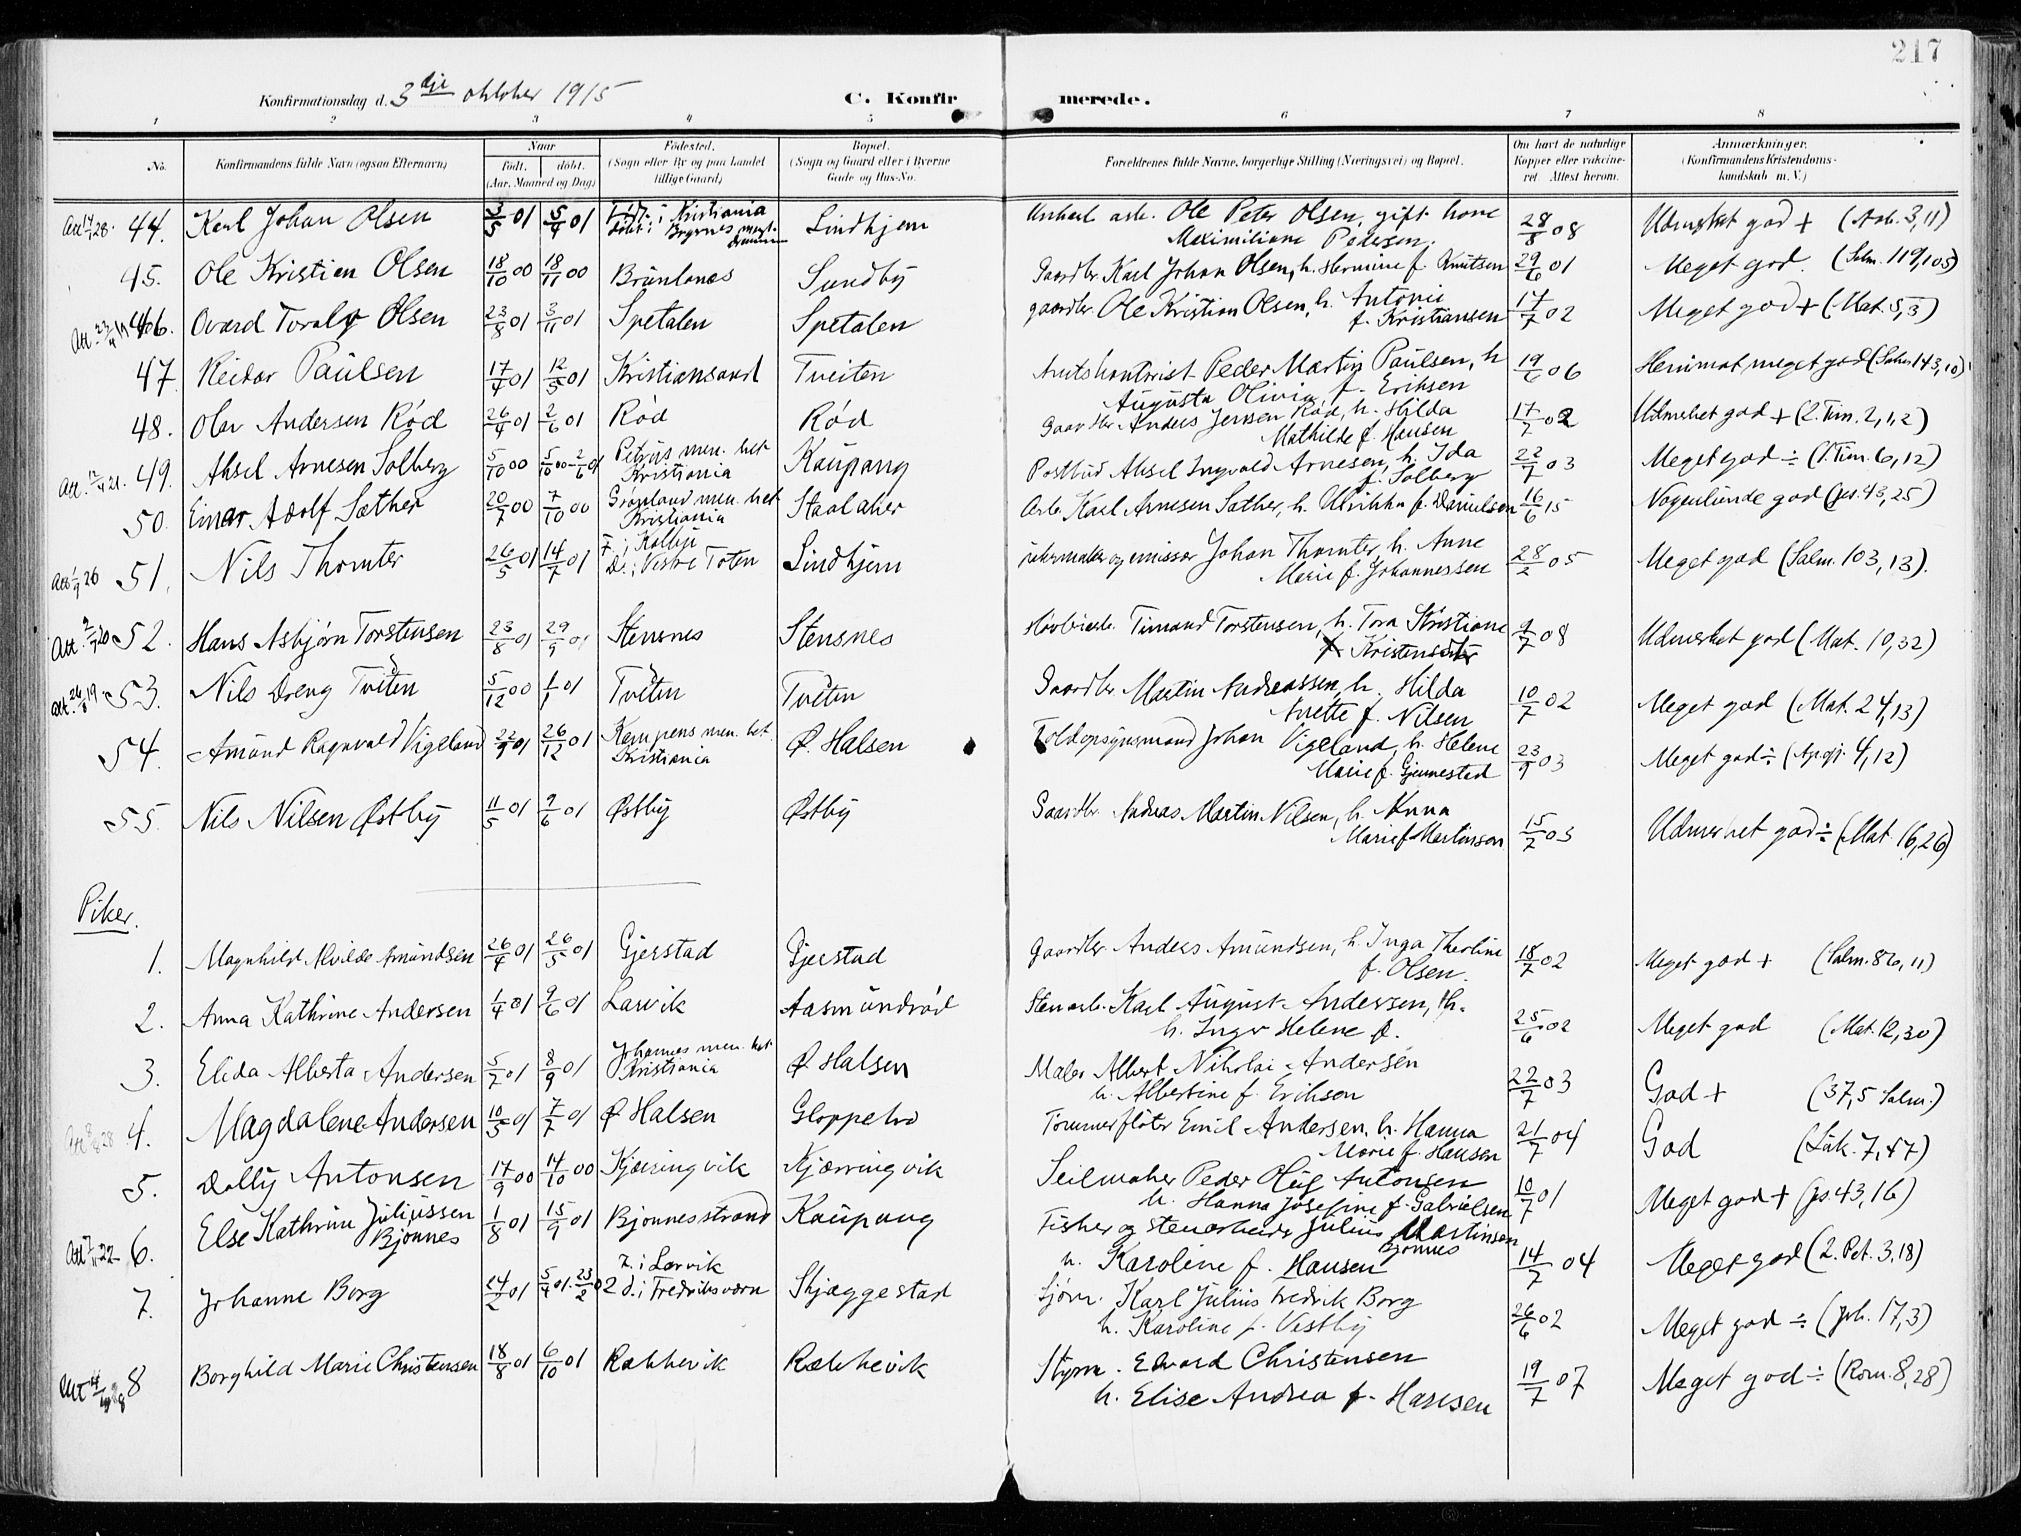 217
Konfirmationsdag d. 3dje oktober 1915 C. Konfirmerede.
1 2 3 4 5 6 7 8
No. Konfirmandens fulde Navn (ogsaa Efternavn) Naar født. døbt. (Aar, Maaned og Dag) Fødested. (Sogn eller By og paa Landet tillige Gaard) Bopæl. (Sogn og Gaard eller i Byerne Gade og Hus-No. Forældrenes fulde Navne, borgerlige Stilling (Næringsvei) og Bopæl. Om havt de naturlige Kopper eller vakcineret Attest herom. Anmærkninger. (Konfirmandens Kristendomskundskab m. V.)
44. Karl Johan Olsen 3/5 01 5/4 01 Kristiania Lindhjem Ole Peter Olsen, gift hone 28/8 08 Udmerket god + (Aab. 3,11)
Maximiliane Pedersen.
45. Ole Kristian Olsen 18/10 00 18/11 00 Brunlanes Sundby Gaardbr. Karl Johan Olsen, h. Hermine f. Knutsen 29/6 01 Meget god. (Salm. 119,105)
46. Ovard Toralv Olsen 23/8 01 3/11 01 Spetalen Spetalen gaardbr. Ole Kristian Olsen, h. Antonie 17/7 02 Meget god + (Mat. 5,3)
f. Kristiansen
47. Reidar Paulsen 17/4 01 12/5 01 Kristianssand Tveiten Amtskontorist Peder Martin Paulsen, h 19/6 06 meget god (Salm. 143,10)
Augusta Olivia f. Eriksen
48. Olav Andersen Rød 26/4 01 2/6 01 Rød Rød Gaardbr. Anders Jensen Rød, h. Hilda 17/7 02 Udmerket god + (2. Tim. 2,1,2)
Mathilde f. Hansen
Att. 12/4 21. 49. Aksel Arnesen Solberg 5/10 00 Petrus men. het Kristiania Kaupang Postbud Aksel Ingvald Arnesen, h. Ida 22/7 03 Meget god ÷ (1. Tim. 6,12)
f. Solberg
50. Einar Adolf Sæther 20/7 00 7/10 00 Grønland men. het Kristiania Staalaker Arb. Karl Arnesen Sæther, h. Ulrikka f. Danielsen 16/6 15 Nogenlunde god (Jes. 43,25)
51. Nils Thomter 26/5 01 14/7 01 F. i Kolbu D. i Vestre Toten Lindhjem urmaker og emissær Johan Thomter, h. Anne 28/2 05 Meget god (Salm. 103,13).
Marie f. Johannessen
Att. 2/7 20 52. Hans Asbjørn Torstensen 23/8 01 29/9 01 Stensnes Stensnes Timand Torstensen, h. Tora Kristiane 9/7 08 Udmerket god (Mat. 10,32)
f. Kristensdtr
Att. 26/8 19 53. Nils Dreng Tveten 5/12 00 1/1 01 Tveten Tveten Gaardbr. Martin Andreassen, h. Hilda 10/7 02 Meget god (Mat. 24,13)
Anette f. Nilsen
54. Amund Ragnvald Vigeland 22/9 01 26/12 01 Kampens men. het. Kristiania Ø. Halsen Toldopsynsmand Johan Vigeland, h. Helene 23/9 03 Meget god ÷ (Ap.gj. 4,12)
Marie f. Gjennestad
55. Nils Nilsen Østby 11/5 01 9/6 01 Østby Østby Gaardbr. Andreas Martin Nilsen, h. Anna 15/7 03 Udmerket god ÷ (Mat. 16,26)
Marie f. Martinsen
Piker.
1. Magnhild Alvilde Amundsen 26/4 01 26/5 01 Gjerstad Gjerstad Gaardbr. Anders Amundsen, h. Inga Theoline 18/7 02 Meget god + (Salm. 86,11)
f. Olsen.
2. Anna Kathrine Andersen 1/4 01 9/6 01 Larvik Aasmundrød Stenarb. Karl August Andersen, 25/6 02 Meget god (Mat. 12,30)
h. Inger Helene f.
3. Elida Alberta Andersen 5/7 01 8/9 01 Johannes men. het Kristiania Ø Halsen Maler Albert Nikolai Andersen 22/7 03 God + (37,5 Salm.)
h. Albertine f. Eriksen
4. Magdalene Andersen 10/5 01 7/7 01 Ø Halsen Gloppetro Tømmerfløter Emil Andersen, h. Hanna 21/7 04 God (Luk. 7,47)
Marie f. Hansen
5. Dolly Antonsen 17/9 00 14/10 00 Kjærringvik Kjærringvik Seilmaker Peder Antonsen 10/7 01 Meget god + (Js. 43,16)
h. Hanna Josefine f. Gabrielsen
Att 22 6. Else Kathrine Juliussen Bjønnes 1/8 01 15/9 01 Bjønnesstrand Kaupang Fisker og stenarbeider Julius Martinsen Bjønnes 14/7 04 Meget god (2. Pet. 3,18)
h. Karoline f. Hansen
7. Johanne Borg 24/2 01 5/4 01. 23/2 02 F. i Larvik d. i Fredriksværn Skjæggestad Sjøm. Karl Julius Fredrik Borg 26/6 02 Meget god ÷ (Joh. 17,3)
h. Karoline f. Vestby
8 Borghild Marie Christensen 18/8 01 6/10 01 Rækkevik Rækkevik Styrm. Edvard Christensen 19/7 07 Meget god ÷ (Rom. 8,28)
h. Elise Andrea f. Hansen